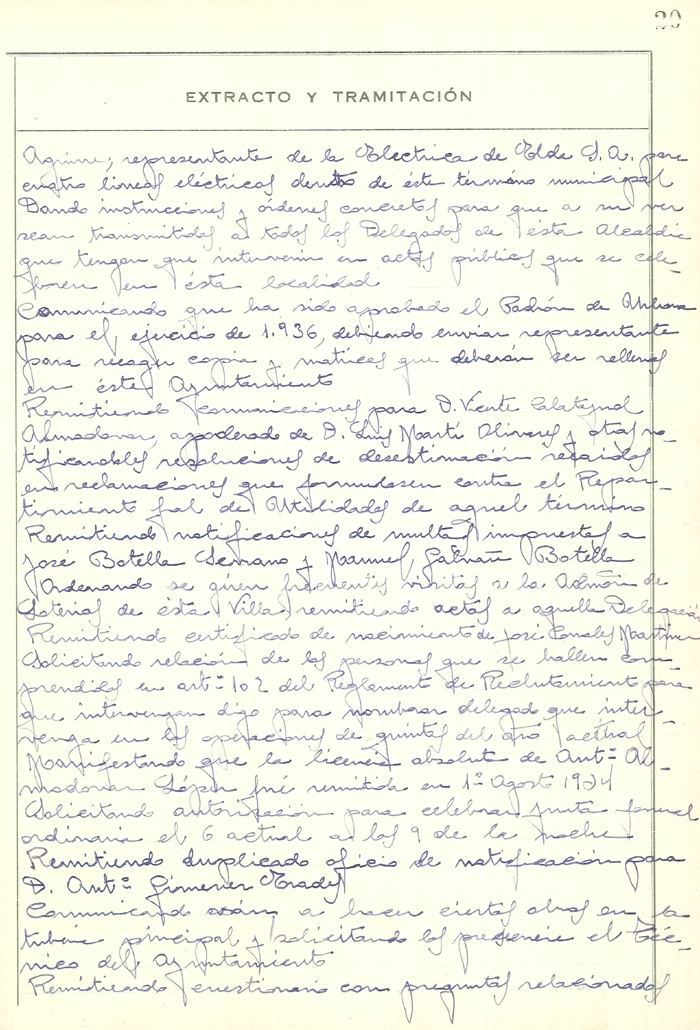 20
EXTRACTO Y TRAMITACIÓN
Aguirre, representante de la Electrica de Elda S.A. para
cuatro lineas eléctricas dentro de éste término municipal
Dando instrucciones y órdenes concretas para que a su vez
sean transmitidas a todos los Delegados de ésta Alcaldia
que tengan que intervenir en actos públicos que se cele-
bren en ésta localidad
Comunicando que ha sido aprobado el Padrón de Urbana
para el ejercicio de 1.936, debiendo enviar representante
para recoger copia y matrices que deberán ser rellenas
en éste Ayuntamiento
Remitiendo comunicaciones para D. Vicente Calatayud
Almodovar, apoderado de D. Luis Martí Olivares y otras no-
tificandoles resoluciones de desestimación recaidas
en reclamaciones que formulasen contra el Repar-
timiento gral de Utilidades de aquel término
Remitiendo notificaciones de multas impuestas a
José Botella Serrano y Manuel Galvañ Botella
Ordenando se giren frecuentes visitas a la Admón de
Loterias de ésta Villa remitiendo actas a aquella Delegación
Remitiendo certificado de nacimiento de José Martinez
Solicitando relación de las personas que se hallen com-
prendidas en artº 102 del Reglamento de Reclutamiento para
que intervengan digo para nombrar delegado que inter-
venga en las operaciones de quintas del año actual
Manifestando que la licencia absoluta de Antº Al-
modovar López fué remitida en 1º Agosto 1924
Solicitando autorización para celebrar junta general
ordinaria el 6 actual a las 9 de la noche
Remitiendo duplicado oficio de notificación para
D. Antº Gimenez
Comunicando van a hacer ciertas obras en la
tubería principal y solicitando las presencie el Téc-
nico del Ayuntamiento
Remitiendo cuestionario con preguntas relacionadas